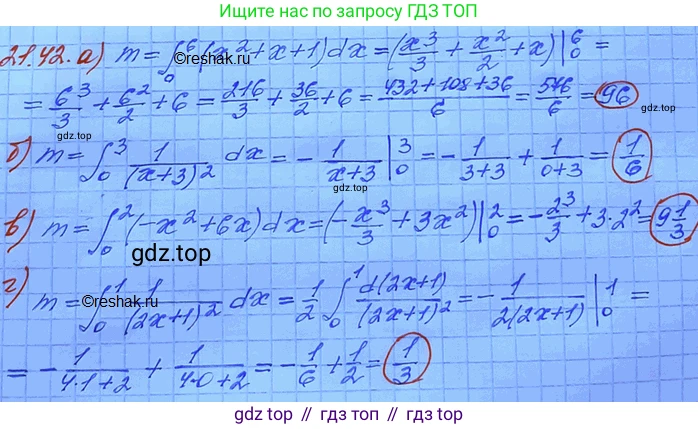 Ищите нас по запросу ГДЗ ТОП
21.42. а) m = ∫₀⁶ (x² + x + 1) dx = (x³/3 + x²/2 + x) |₀⁶ =
= 6³/3 + 6²/2 + 6 = 216/3 + 36/2 + 6 = (432 + 108 + 36)/6 = 576/6 = 96
gdz.top
gdz.top
б) m = ∫₀³ 1/(x+3)² dx = - 1/(x+3) |₀³ = - 1/(3+3) + 1/(0+3) = 1/6
©reshak.ru
в) m = ∫₀² (-x² + 6x) dx = (- x³/3 + 3x²) |₀² = - 2³/3 + 3·2² = 9 1/3
gdz.top
г) m = ∫₀¹ 1/(2x+1)² dx = 1/2 ∫₀¹ d(2x+1)/(2x+1)² = - 1/(2(2x+1)) |₀¹ =
©reshak.ru
= - 1/(4·1+2) + 1/(4·0+2) = - 1/6 + 1/2 = 1/3
gdz.top // гдз топ // gdz.top